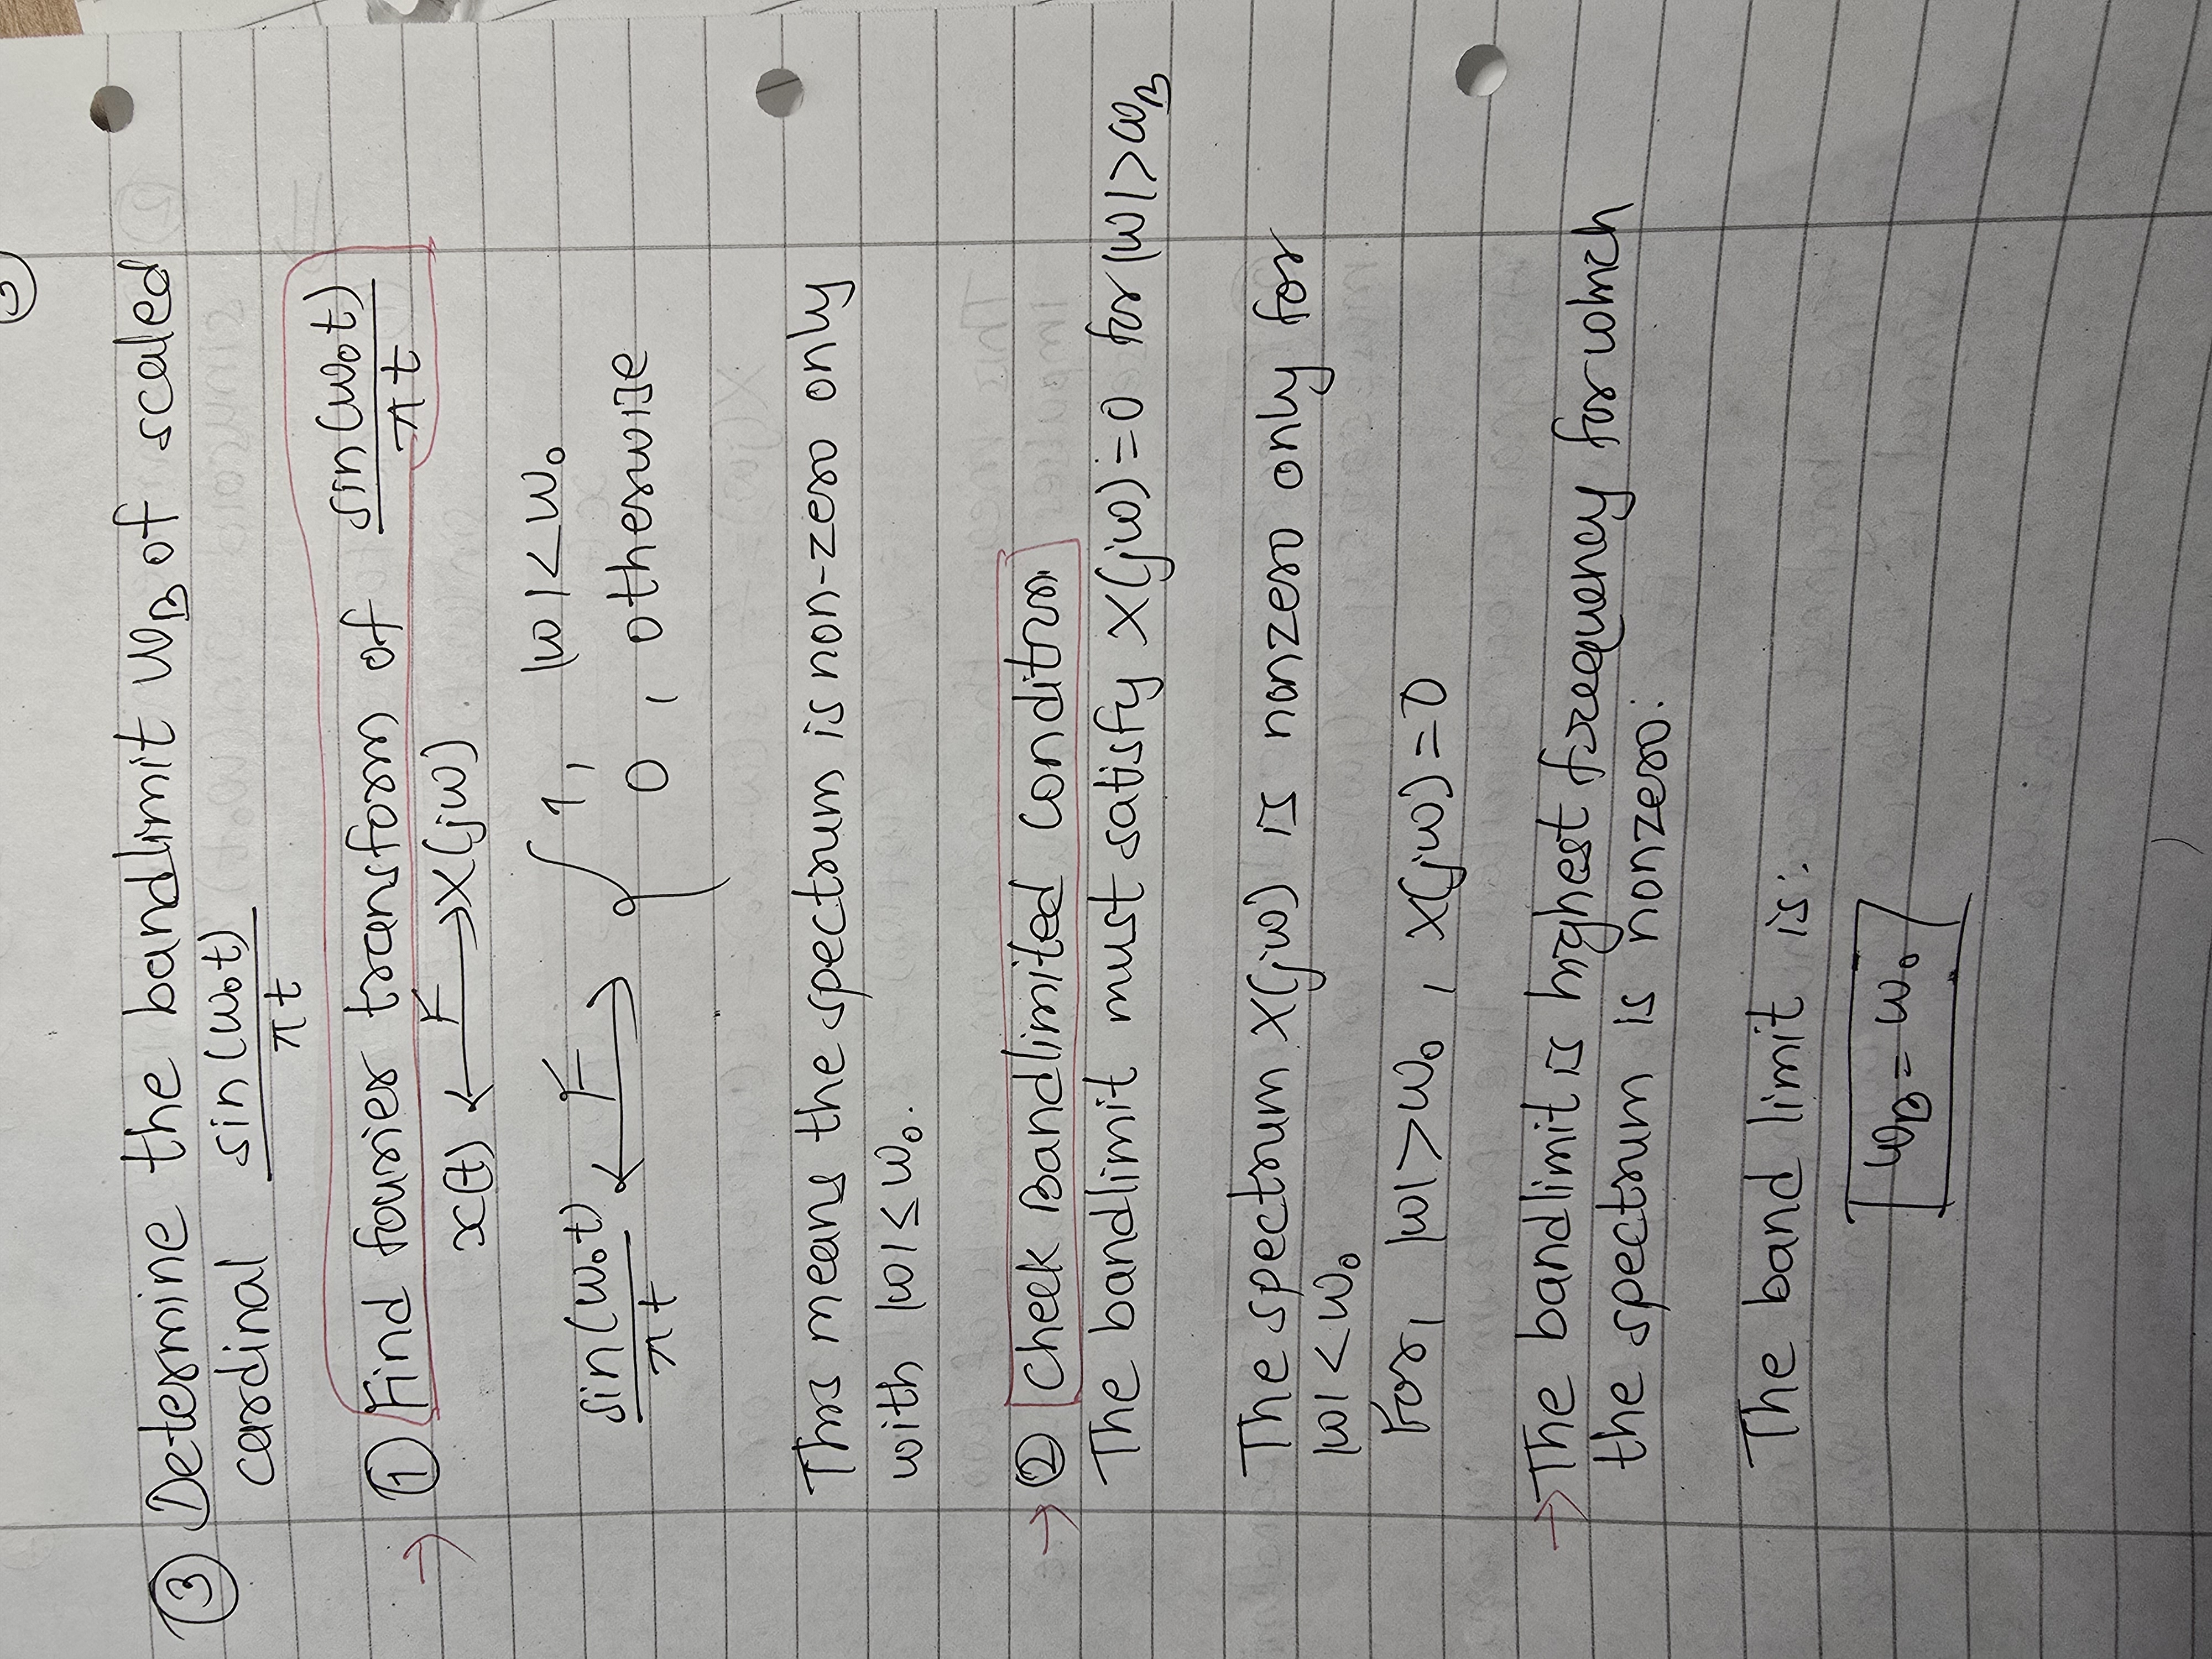 ③ Determine the bandlimit ω_B of scaled
cardinal sin(ω₀t)/πt
① Find fourier transform of sin(ω₀t)/πt
x(t) ←F→ X(jω)
sin(ω₀t)/πt ←F→ { 1, |ω| < ω₀
0, otherwise
This means the spectrum is non-zero only
with |ω| ≤ ω₀.
→ ② Check Bandlimited Condition.
The bandlimit must satisfy X(jω)=0 for |ω|>ω_B
The spectrum X(jω) is nonzero only for
|ω| < ω₀
For, |ω| > ω₀, X(jω) = 0
→ The bandlimit is highest frequency for which
the spectrum is nonzero:
The band limit is:
ω_B = ω₀